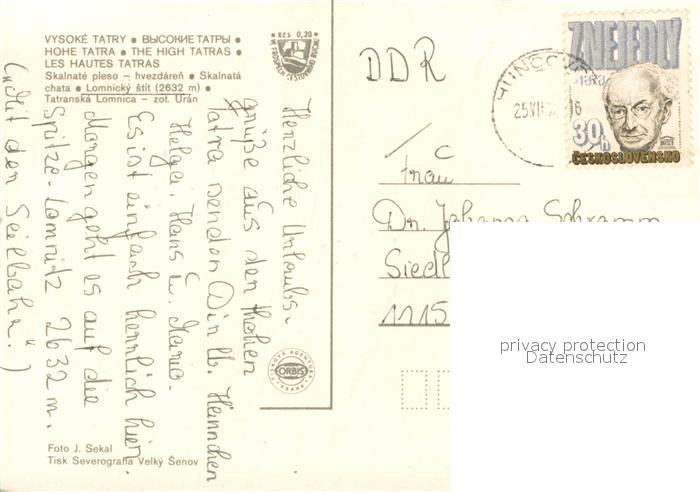 VYSOKÉ TATRY • ВЫСОКИЕ ТАТРЫ •
HOHE TATRA • THE HIGH TATRAS •
LES HAUTES TATRAS
Skalnaté pleso – hvezdáreň • Skalnatá
chata • Lomnický štít (2632 m) •
Tatranská Lomnica – zot. Urán
Kčs 0,20
Herzliche Urlaubs-
grüße aus den Hohen
Tatra senden Dir lb. Heinnchen
Helga, Hans u. Mario.
Es ist einfach herrlich hier.
Morgen geht es auf die
Spitze-Lomnitz 2632 m.
(„Mit der Seilbahn".)
Foto J. Sekal
Tisk Severografia Velký Šenov
ORBIS
PRAHA
DDR
ZNEJEDLÝ
1878
30h
ČESKOSLOVENSKO
HUNCOVCE
25.VII
16
Frau
Dr. Johanna Schramm
Siedl
1115
privacy protection
Datenschutz